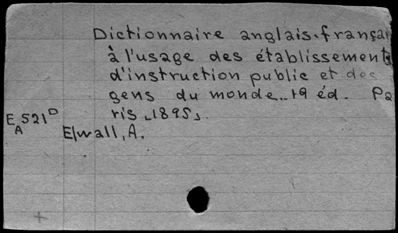 Dictionnaire anglais-françai
à l'usage des établissement
d'instruction public et des
gens du monde..19 éd. Pa
ris ⌞1895⌟.
E 521 D
A
Elwall, A.